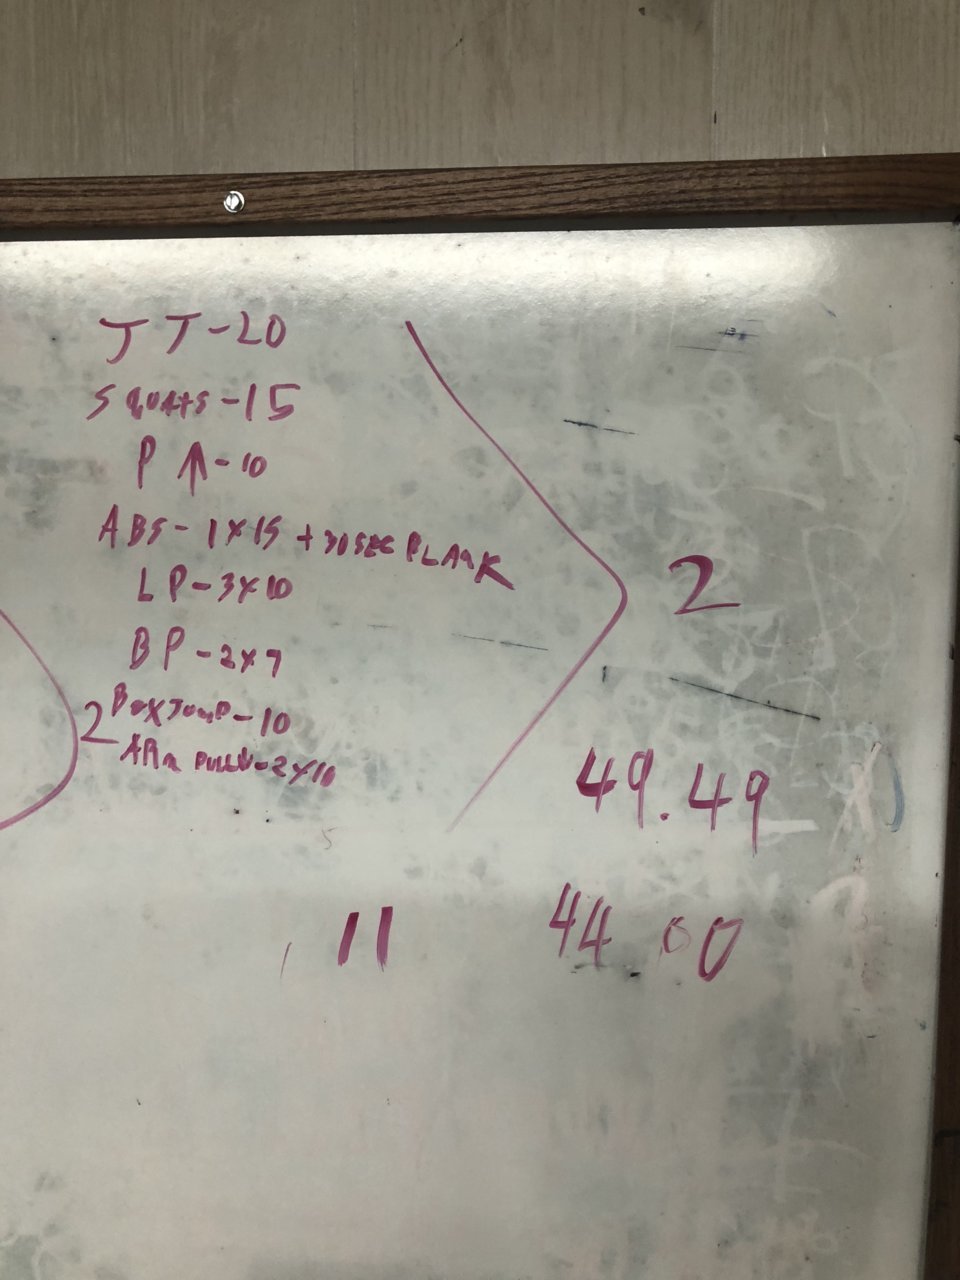 JJ-20
SQUATS-15
P ↑-10
ABS-1X15 +30 SEC PLANK
LP-3X10
BP-2X7
2
BOX JUMP-10
ARM PULL-2X10
2
49.49
11
44 00